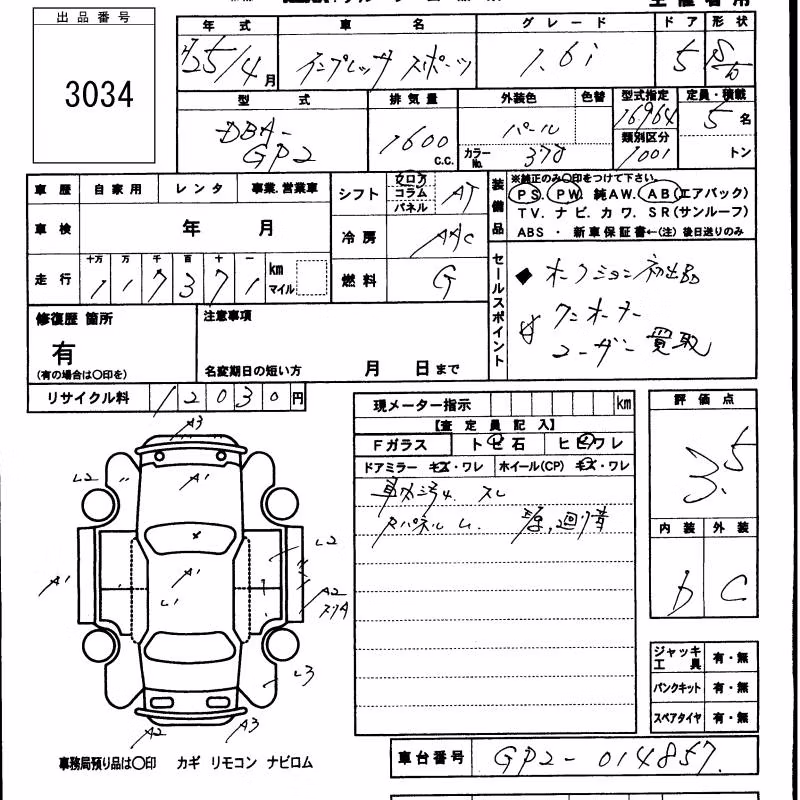 出品番号
3034
年式 車名 グレード ドア 形状
H25/4月 インプレッサ スポーツ 1.6i 5 S/b
型式 排気量 外装色 色替 型式指定 定員・積載
DBA-GP2 1600 C.C. パール 16964 5名
カラーNo. 378 類別区分 1001 トン
車歴 自家用 レンタ 事業.営業車
シフト フロア コラム パネル AT
装備品
※純正のみ〇印をつけて下さい。
PS. PW. 純AW. AB(エアバック)
TV. ナビ. カワ. SR(サンルーフ)
ABS ・ 新車保証書←(注) 後日送りのみ
車検 年 月
冷房 AAC
走行 十万 万 千 百 十 一 km マイル
117371
燃料 G
セールスポイント
◆ オークション初出品
ワンオーナー
ユーザー買取
修復歴 箇所
有
(有の場合は〇印を)
注意事項
名変期日の短い方 月 日まで
リサイクル料 12030円
現メーター指示 km
【査定員記入】
Fガラス トビ石 ヒビワレ
ドアミラー キズ・ワレ ホイール(CP) キズ・ワレ
スレ
評価点
3.5
内装 外装
D C
A3
L2
A1
A1
A1
L1
L2
A2
L3
A2
A3
ジャッキ工具 有・無
パンクキット 有・無
スペアタイヤ 有・無
事務局預り品は〇印 カギ リモコン ナビロム
車台番号 GP2-014857